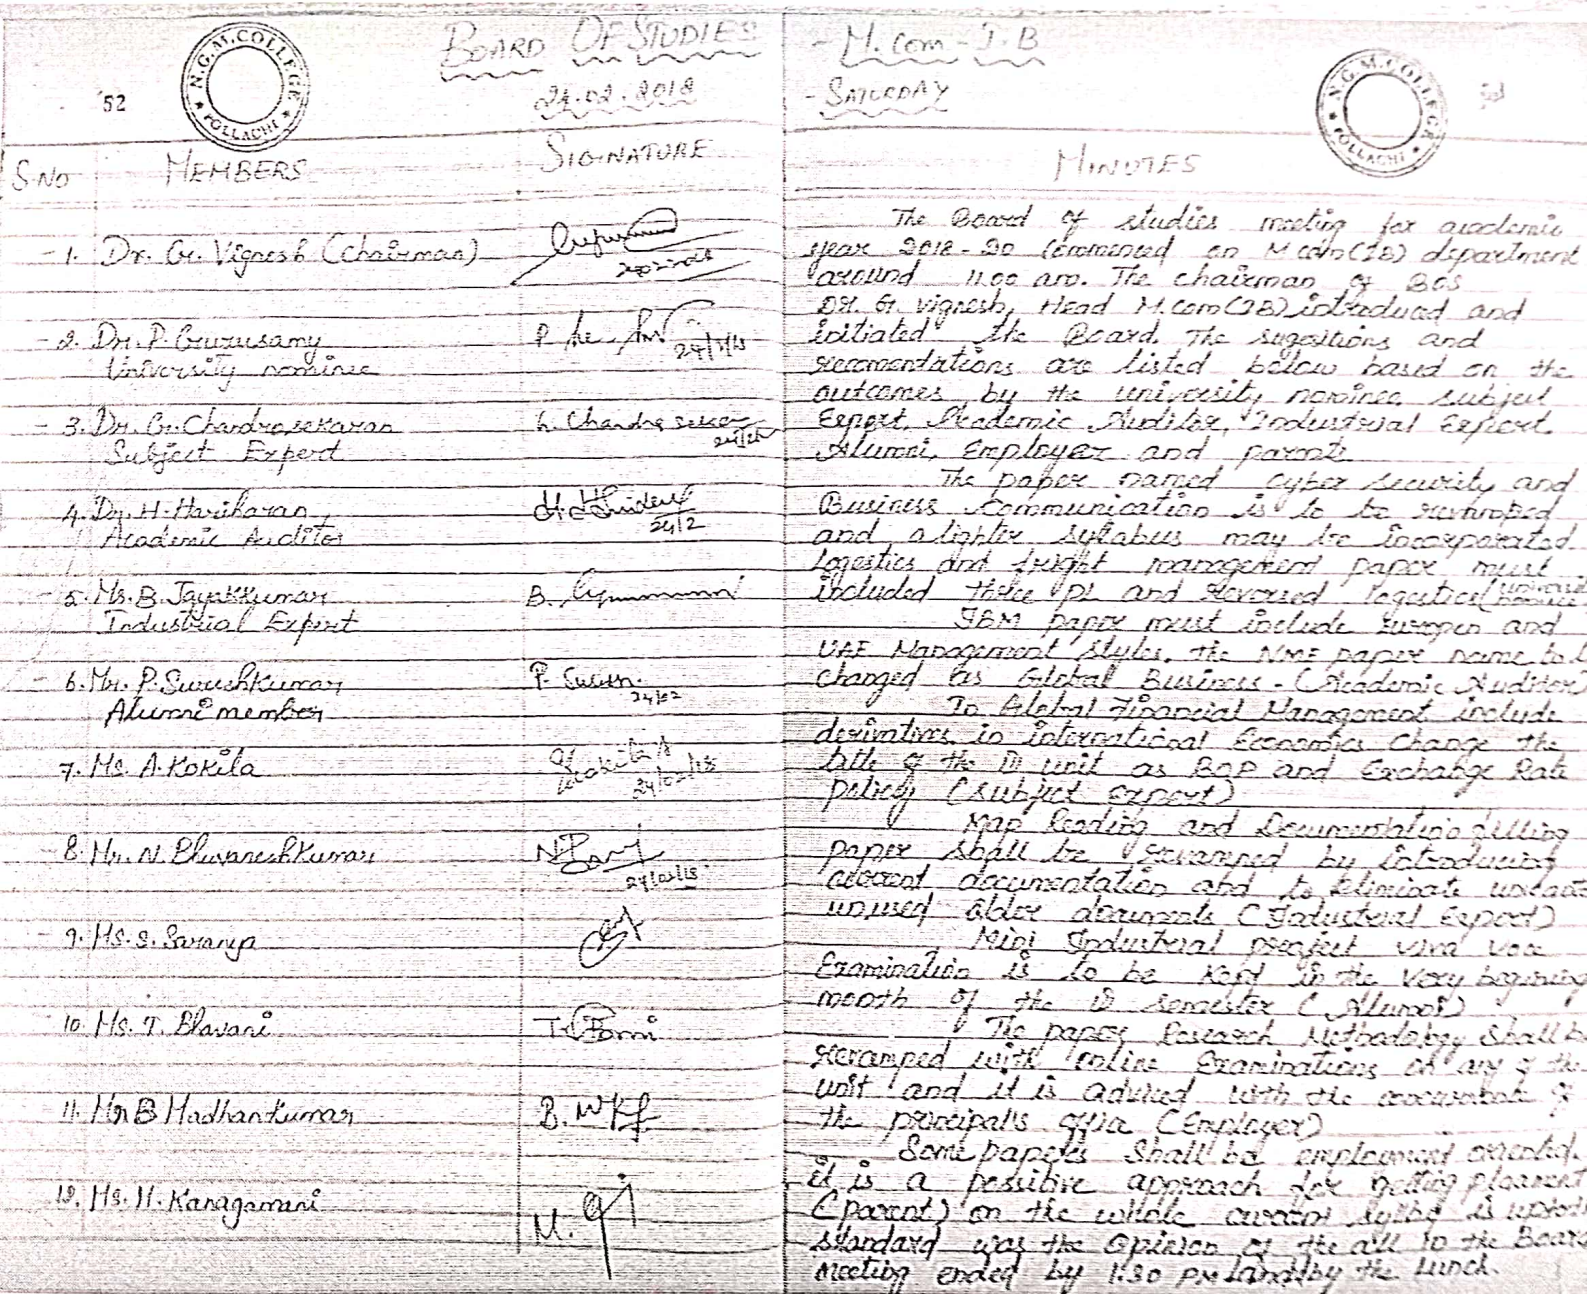 BOARD OF STUDIES - M.Com - I.B
24.02.2018 - SATURDAY
52
N.G.M.COLLEGE
POLLACHI
S.NO MEMBERS SIGNATURE
1. Dr. G. Vignesh (Chairman)
2. Dr. P. Gurusamy
University nominee
24/2/18
3. Dr. G. Chandrasekaran
Subject Expert
4. Dr. H. Hariharan
Academic Auditor
24/2
5. Mr. B. Jayakkumar
Industrial Expert
6. Mr. P. Sureshkumar
Alumni member
24/02
7. Ms. A. Kokila
24/02/18
8. Mr. N. Bhuvaneshkumar
24/02/18
9. Ms. S. Saranya
10. Ms. T. Bhavani
11. Mr B Madhankumar
12. Ms. M. Kanagamani
N.G.M.COLLEGE
POLLACHI
MINUTES
The Board of studies meeting for academic
year 2018-20 Commenced on M com(IB) department
around 11.00 am. The chairman of BOS
Dr. G. Vignesh, Head M.Com(IB) introduced and
initiated the Board. The sugesitions and
recomentations are listed below based on the
outcomes by the university nominee, subject
Expert, Academic Auditor, Industrial Expert
Alumni, Employer and parents
The paper named cyber security and
Business Communication is to be revamped
and a lighter syllabus may be incorporated
Logestics and fright management paper must
included three PL and reversed logestics
IBM paper must include Europen and
UAE Management styles. the NME paper name to be
changed as Global Business - (Academic Auditor)
In Global Financial Management include
derivatives in international Economics Change the
title of the unit as BOP and Exchange Rate
policy (subject expert)
Map Reading and Documentation filling
paper shall be revamped by introducing
current documentation and to eliminate
unused older documents (Industrial Expert)
Mini Industrial project viva voce
Examination is to be kept in the very beginning
month of the semester (Alumni)
The paper Research Methodology Shall be
revamped with online Examinations on any of the
unit and it is advised with the of
the principal's office (Employer)
Some papers shall be employment oriented.
it is a possitive approach for getting
(parent) on the whole current is
standard was the opinion of the all in the Board
Meeting ended by 1.30 PM by the lunch.